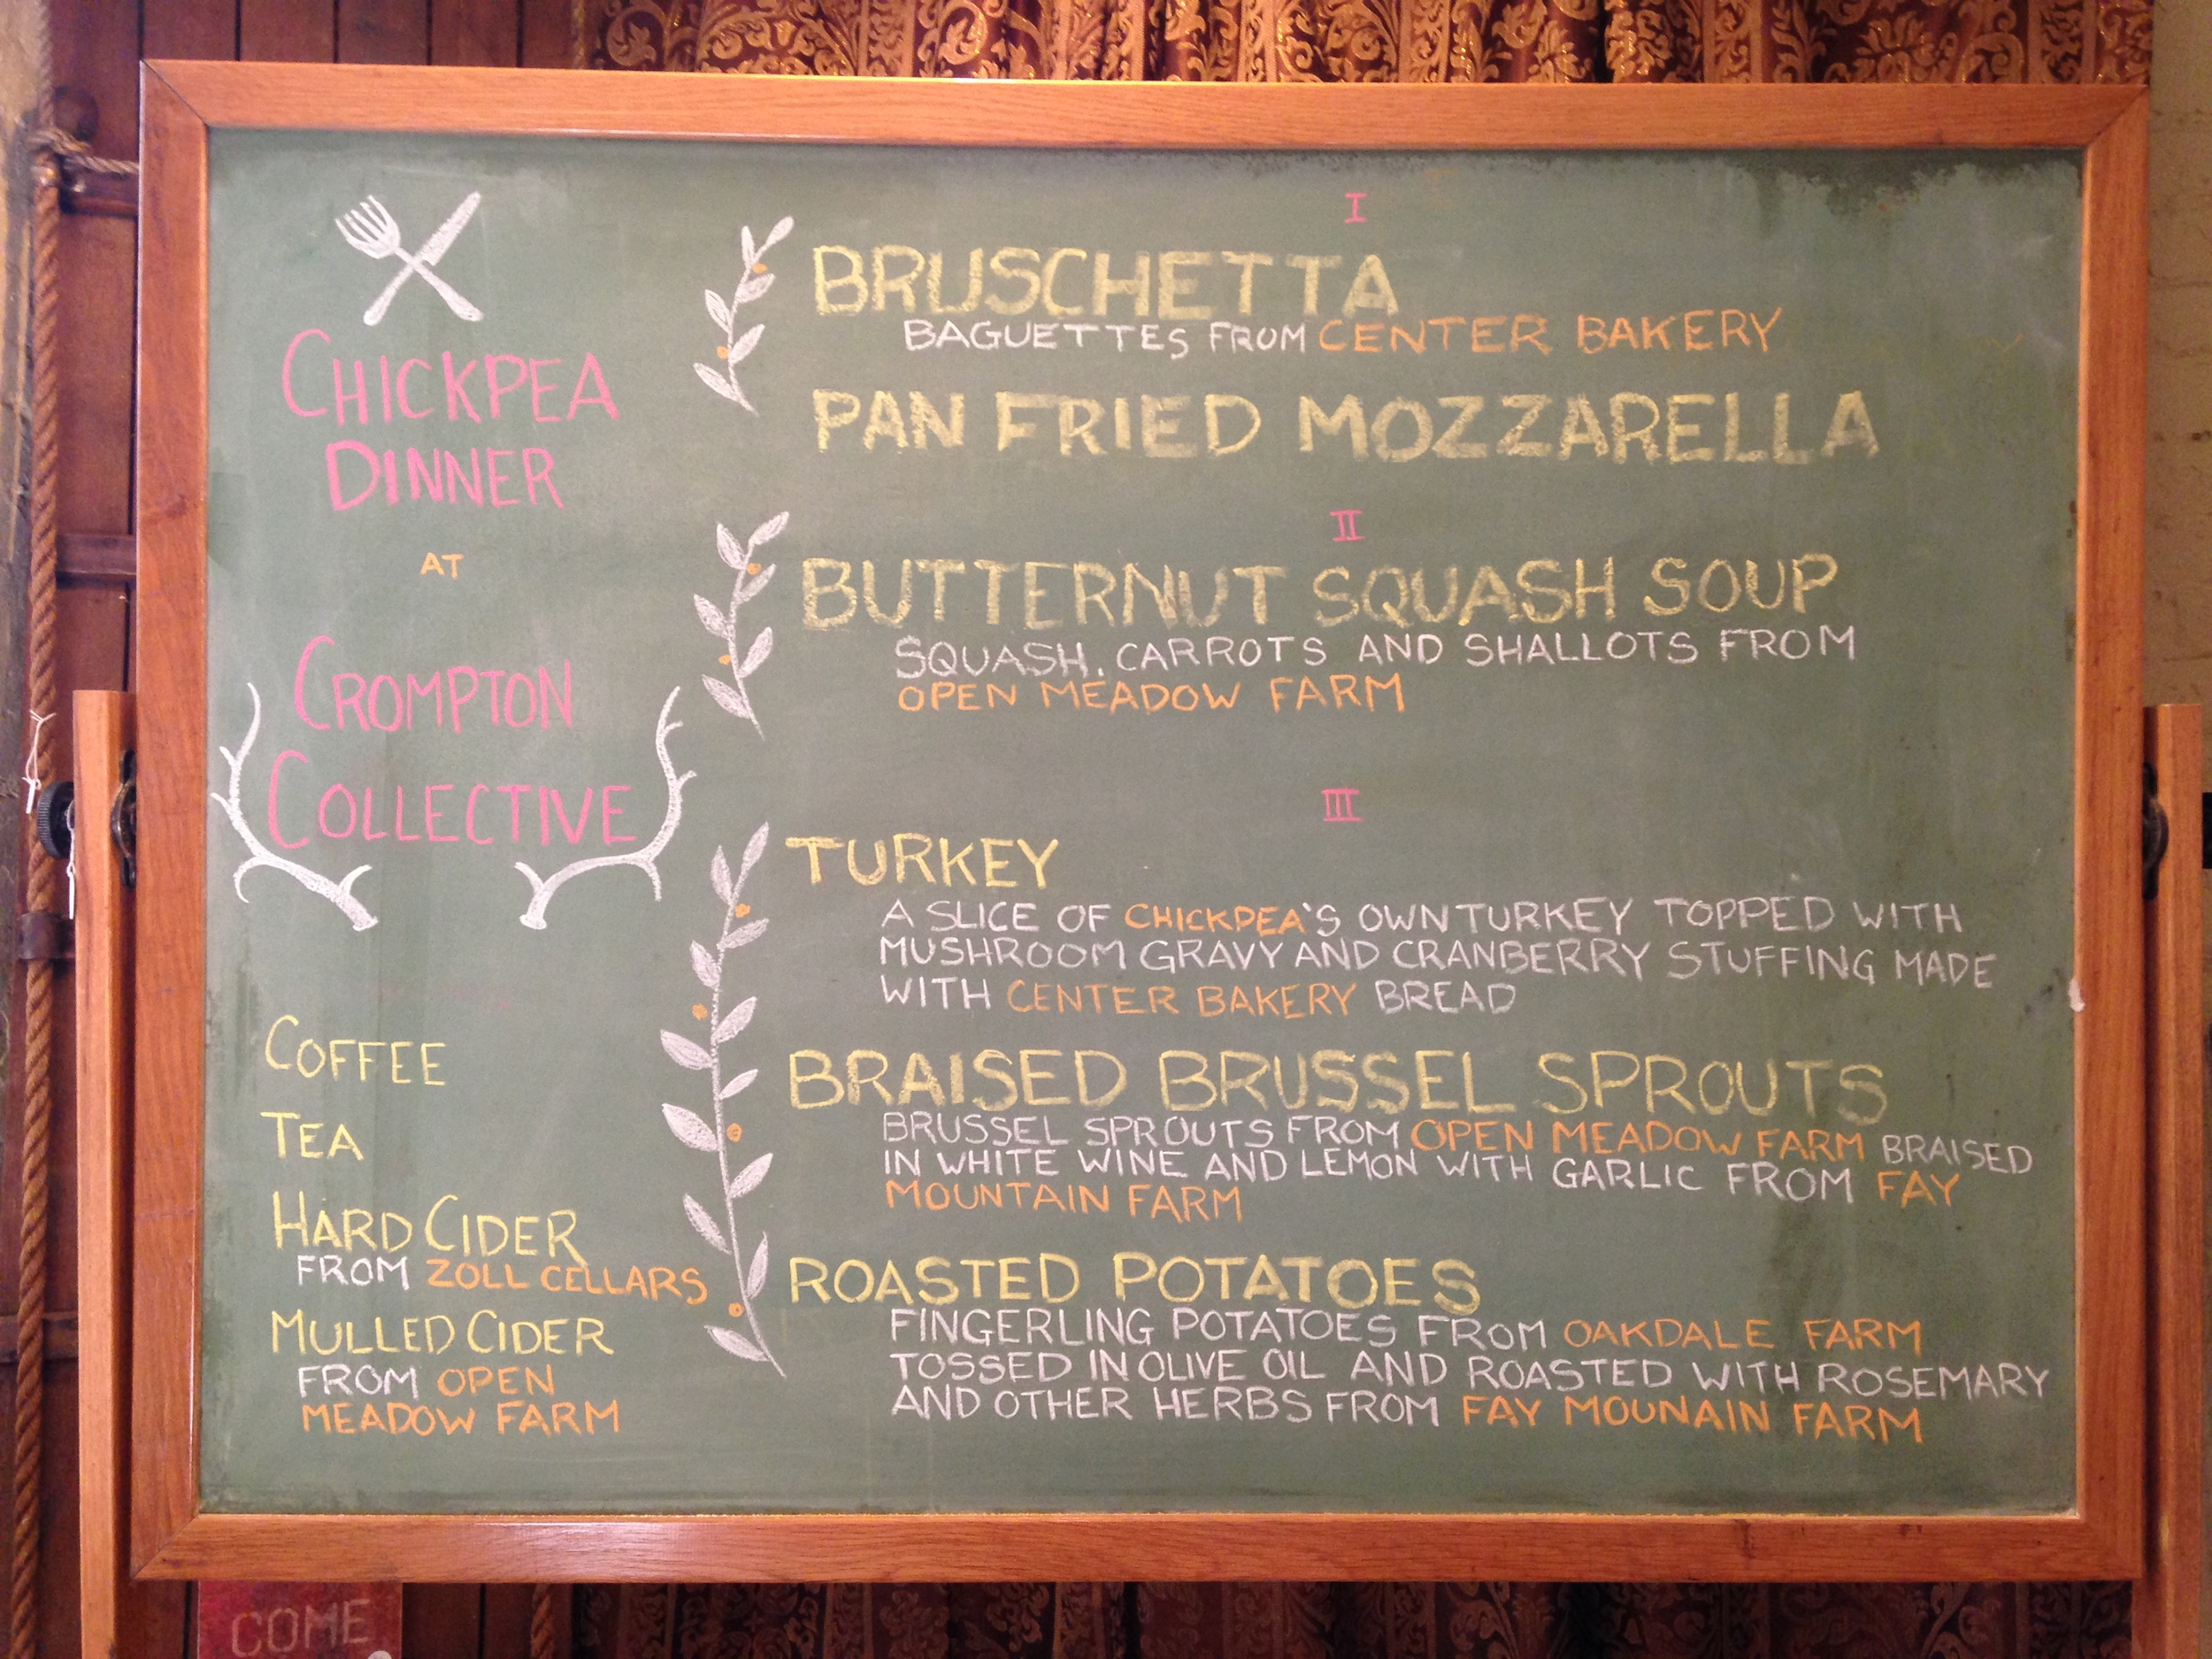 CHICKPEA
DINNER
AT
CROMPTON
COLLECTIVE
COFFEE
TEA
HARD CIDER
FROM ZOLL CELLARS
MULLED CIDER
FROM OPEN
MEADOW FARM
I
BRUSCHETTA
BAGUETTES FROM CENTER BAKERY
PAN FRIED MOZZARELLA
II
BUTTERNUT SQUASH SOUP
SQUASH, CARROTS AND SHALLOTS FROM
OPEN MEADOW FARM
III
TURKEY
A SLICE OF CHICKPEA'S OWN TURKEY TOPPED WITH
MUSHROOM GRAVY AND CRANBERRY STUFFING MADE
WITH CENTER BAKERY BREAD
BRAISED BRUSSEL SPROUTS
BRUSSEL SPROUTS FROM OPEN MEADOW FARM BRAISED
IN WHITE WINE AND LEMON WITH GARLIC FROM FAY
MOUNTAIN FARM
ROASTED POTATOES
FINGERLING POTATOES FROM OAKDALE FARM
TOSSED IN OLIVE OIL AND ROASTED WITH ROSEMARY
AND OTHER HERBS FROM FAY MOUNAIN FARM
COME